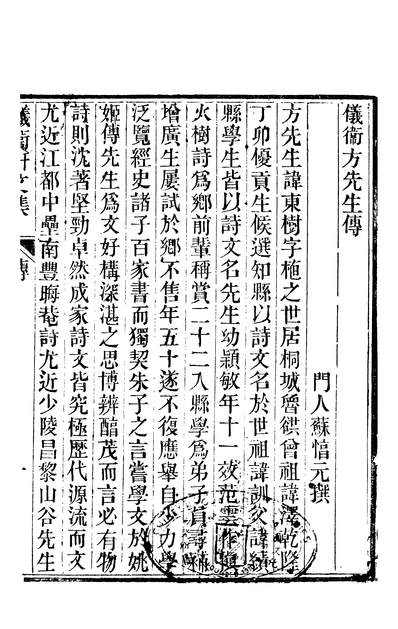 儀衛方先生傳
門人蘇惇元撰
方先生諱東樹字植之世居桐城魯谼曾祖諱澤乾隆
丁卯優貢生候選知縣以詩文名於世祖諱訓父諱績
縣學生皆以詩文名先生幼穎敏年十一效范雲作
火樹詩爲鄉前輩稱賞二十二入縣學爲弟子員尋
增廣生屢試於鄉不售年五十遂不復應舉自少力學
泛覽經史諸子百家書而獨契朱子之言嘗學文於姚
姬傳先生爲文好構深湛之思博辨醇茂而言必有物
詩則沈著堅勁卓然成家詩文皆究極歷代源流而文
尤近江都中壘南豐晦菴詩尤近少陵昌黎山谷先生
儀衛軒文集 傳 一